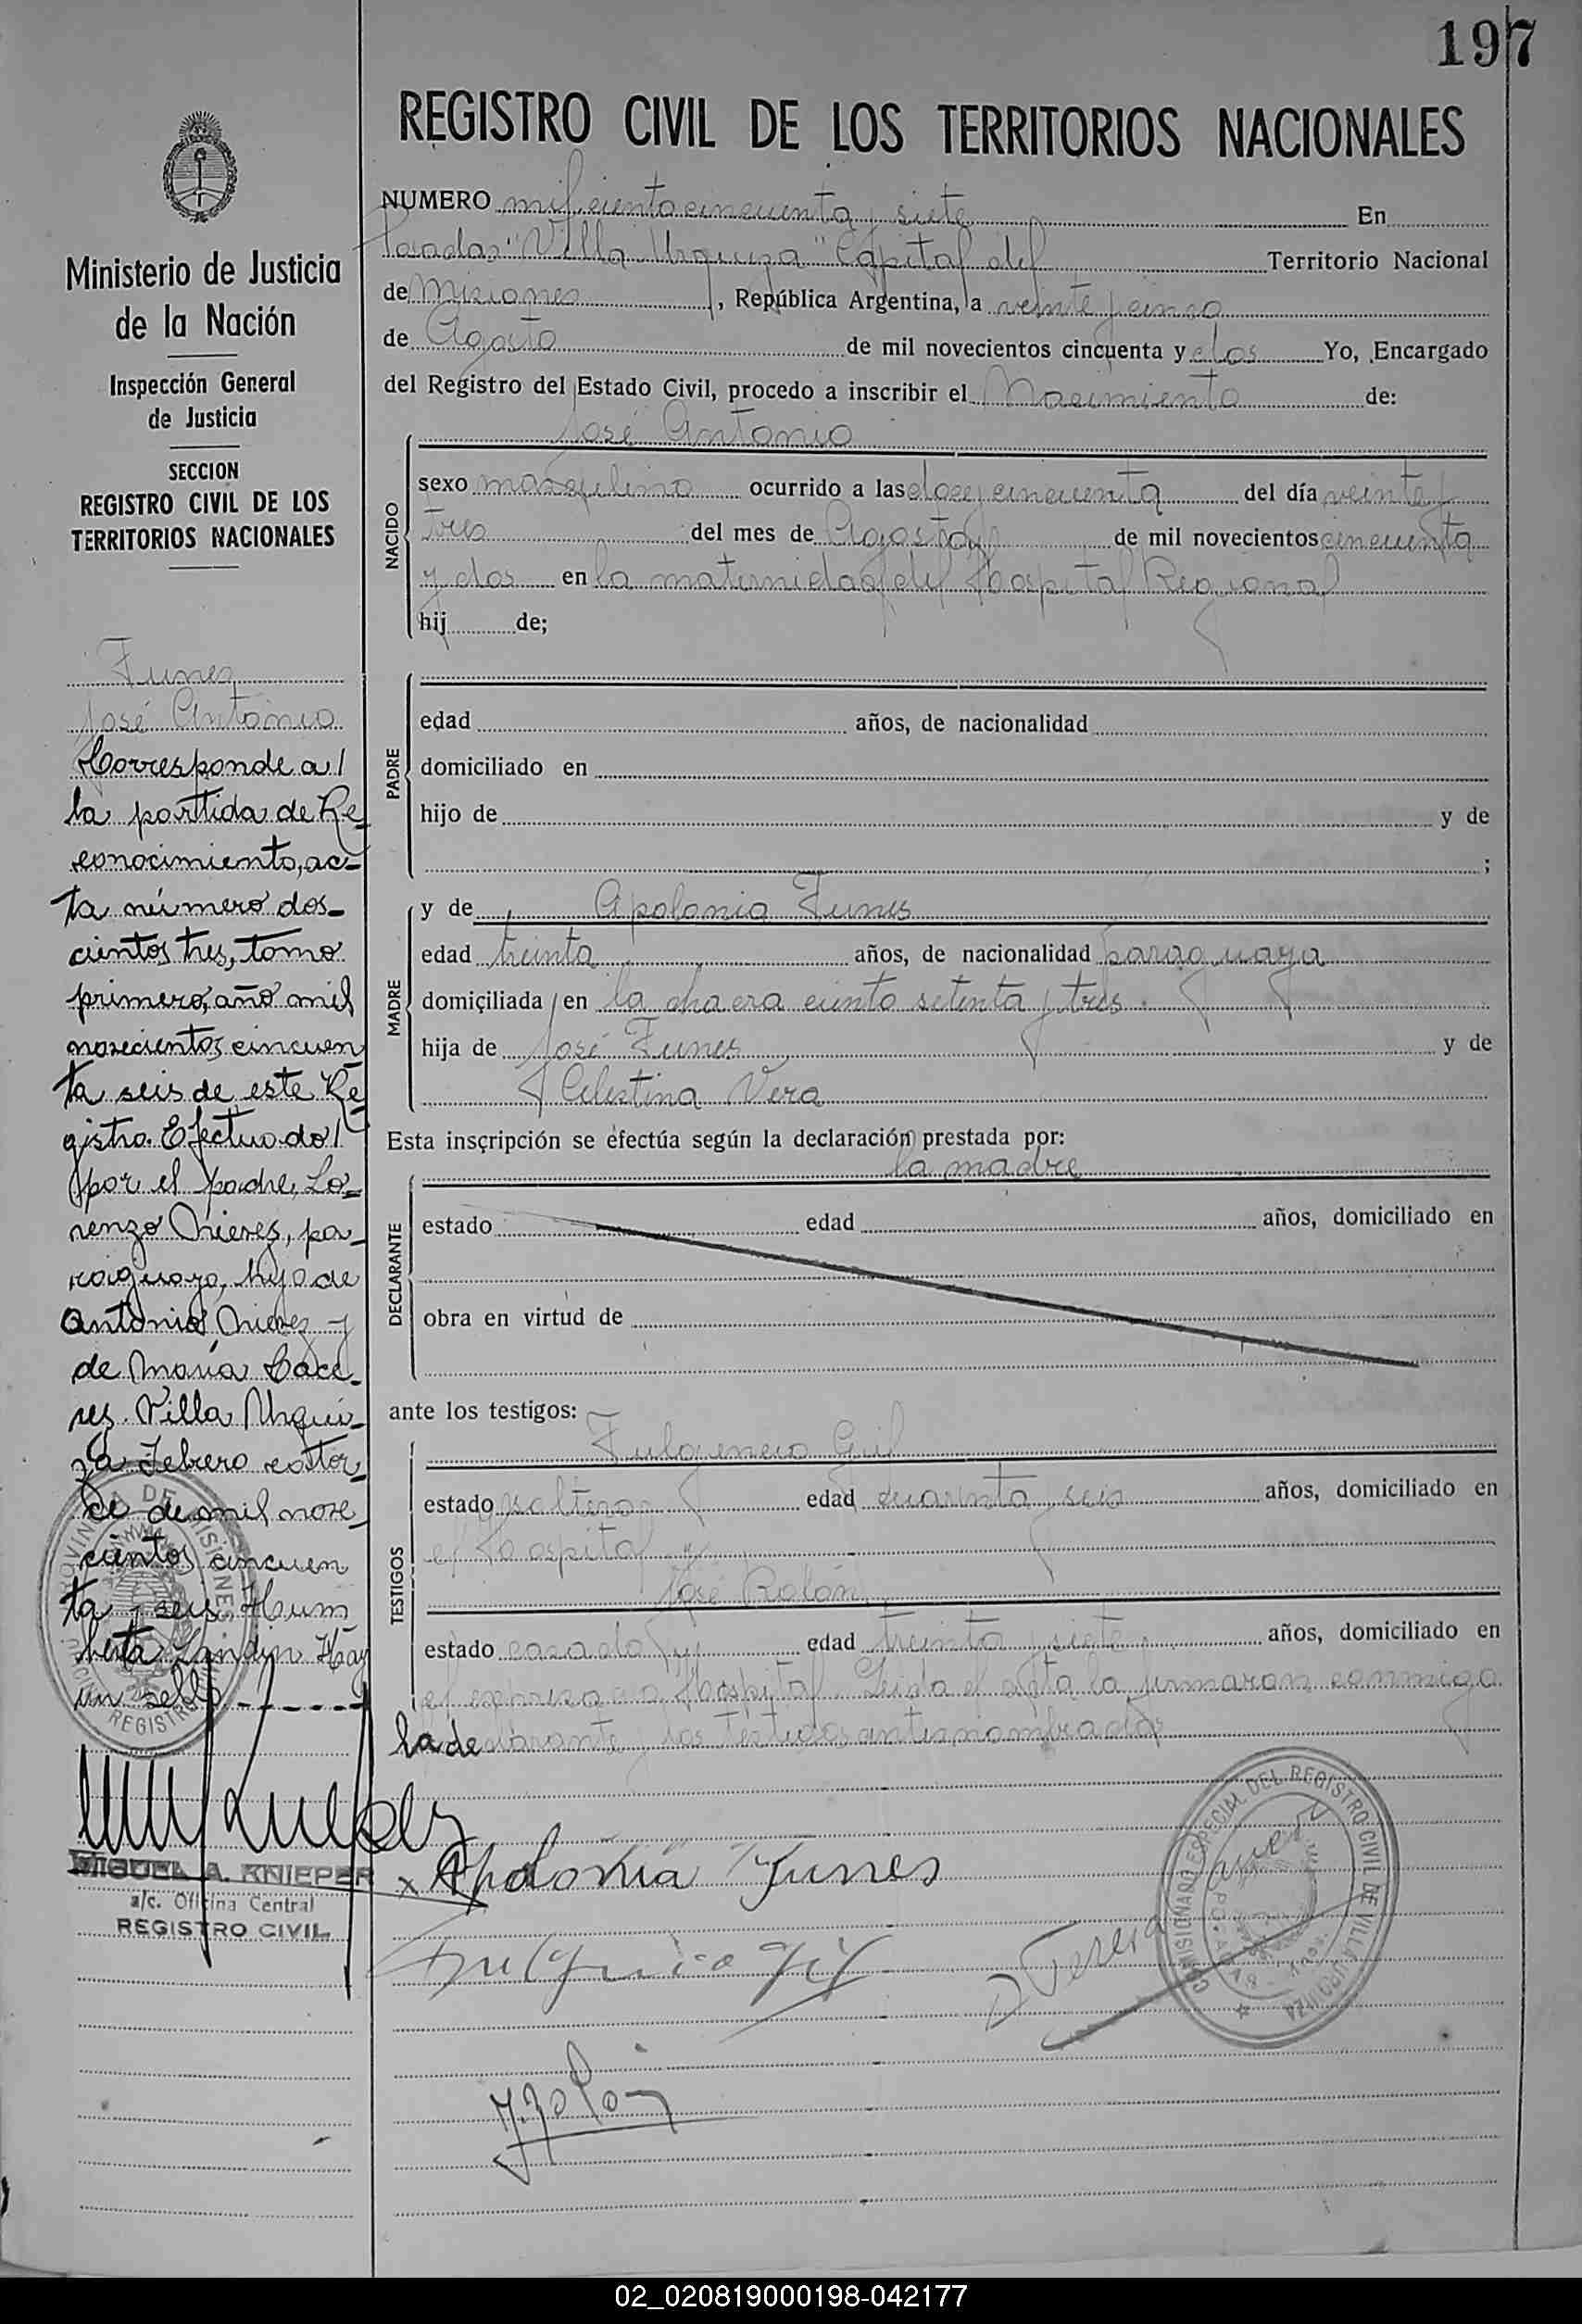 197
REGISTRO CIVIL DE LOS TERRITORIOS NACIONALES
Ministerio de Justicia
de la Nación
Inspección General
de Justicia
SECCION
REGISTRO CIVIL DE LOS
TERRITORIOS NACIONALES
Funes
José Antonio
Corresponde a/
la partida de Re-
conocimiento, ac-
ta número dos-
cientos tres, tomo
primero, año mil
novecientos cincuen
ta seis de este Re-
gistro. Efectuado/
por el padre, Lo-
renzo Nieves, pa-
raguayo, hijo de
Antonio Nieves y
de María Cáce-
res. Villa Urqui-
za Febrero cator-
ce de mil nove-
cientos cincuen
ta y seis. Hum
berta Landin Hay
un sello.-----
MIGUEL A. KNIEPER
a/c. Oficina Central
REGISTRO CIVIL
NUMERO mil ciento cincuenta y siete En
Posadas "Villa Urquiza" Capital del Territorio Nacional
de Misiones, República Argentina, a veinte y cinco
de Agosto de mil novecientos cincuenta y dos Yo, Encargado
del Registro del Estado Civil, procedo a inscribir el Nacimiento de:
NACIDO
José Antonio
sexo masculino ocurrido a las doce y cincuenta del día veinte y
tres del mes de Agosto de mil novecientos cincuenta
y dos en la maternidad del Hospital Regional
hij de;
PADRE
edad años, de nacionalidad
domiciliado en
hijo de y de
;
MADRE
y de Apolonia Funes
edad treinta años, de nacionalidad paraguaya
domiciliada en la chacra ciento setenta y tres.
hija de José Funes y de
Celestina Vera
Esta inscripción se efectúa según la declaración prestada por:
la madre
DECLARANTE
estado edad años, domiciliado en
obra en virtud de
ante los testigos:
TESTIGOS
Fulgencio Gil
estado soltero edad cuarenta y seis años, domiciliado en
el Hospital y
José Rolón
estado casado edad treinta y siete años, domiciliado en
el expresado Hospital. Leída el acta la firmaron conmigo
la declarante y los testigos antes nombrados
x Apolonia Funes
Fulgencio Gil
J. Rolón
COMISIONADO ESPECIAL DEL REGISTRO CIVIL DE VILLA URQUIZA
PROVINCIA DE MISIONES
02_020819000198-042177